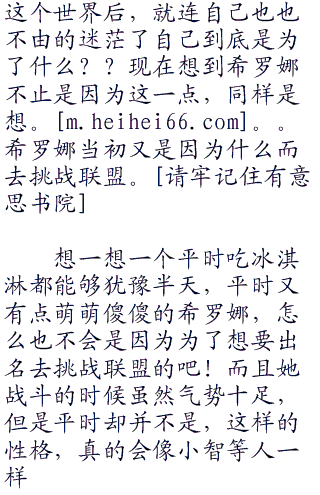 这个世界后，就连自己也也
不由的迷茫了自己到底是为
了什么？？现在想到希罗娜
不止是因为这一点，同样是
想。[m.heihei66.com]。。
希罗娜当初又是因为什么而
去挑战联盟。[请牢记住有意
思书院]
想一想一个平时吃冰淇
淋都能够犹豫半天，平时又
有点萌萌傻傻的希罗娜，怎
么也不会是因为为了想要出
名去挑战联盟的吧！而且她
战斗的时候虽然气势十足，
但是平时却并不是，这样的
性格，真的会像小智等人一
样